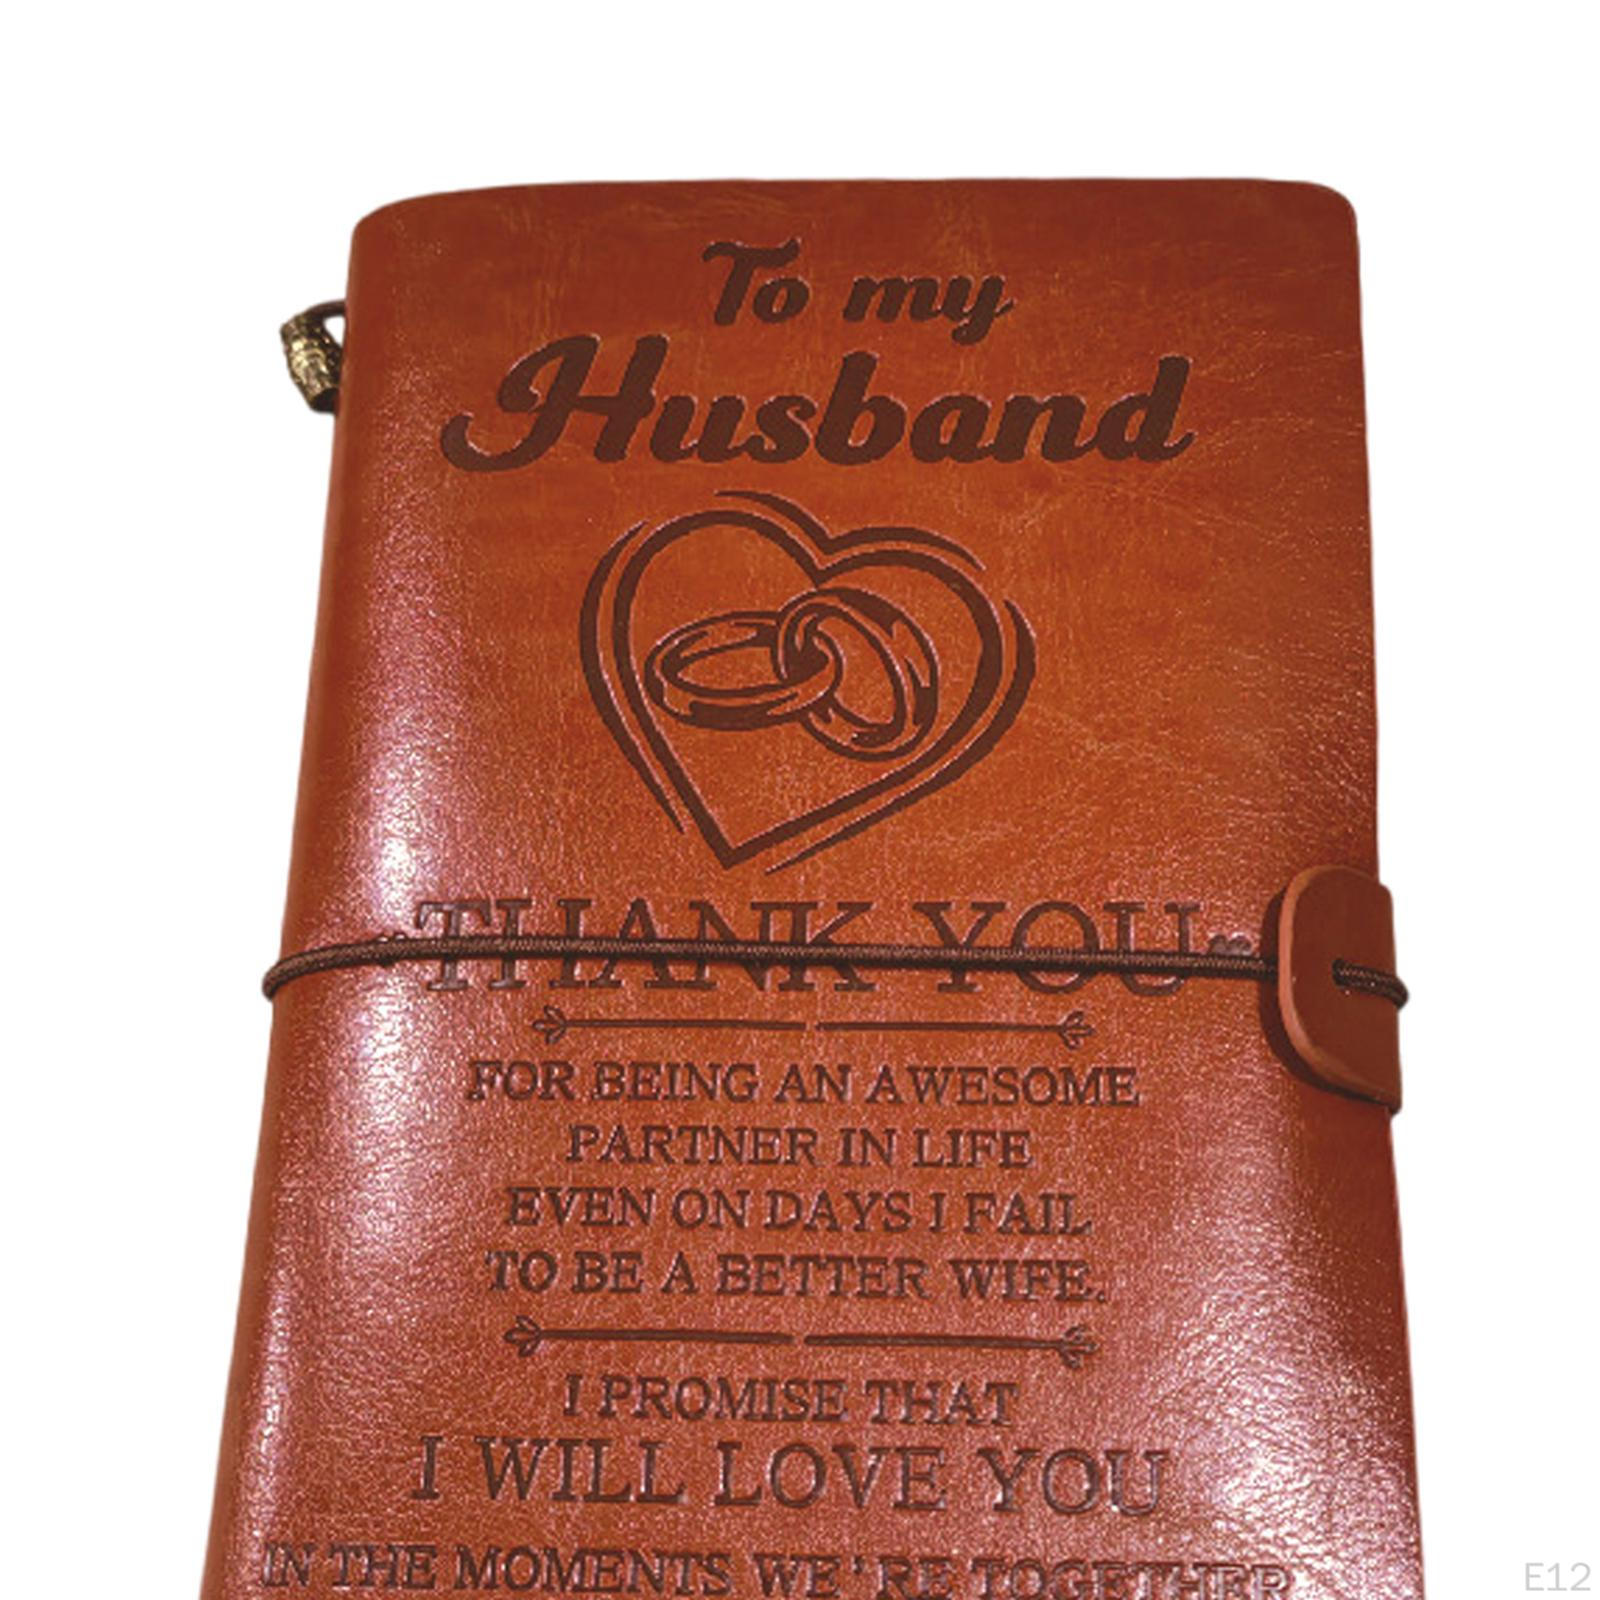 To my
Husband
THANK YOU
FOR BEING AN AWESOME
PARTNER IN LIFE
EVEN ON DAYS I FAIL
TO BE A BETTER WIFE.
I PROMISE THAT
I WILL LOVE YOU
IN THE MOMENTS WE'RE TOGETHER
E12